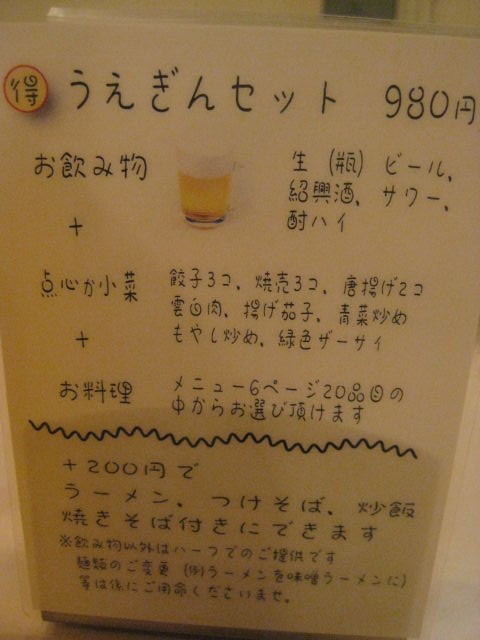 得 うえぎんセット 980円
お飲み物 生(瓶)ビール、
紹興酒、サワー、
酎ハイ
+
点心か小菜 餃子3コ、焼売3コ、唐揚げ2コ
雲白肉、揚げ茄子、青菜炒め
もやし炒め、緑色ザーサイ
+
お料理 メニュー6ページ20品目の
中からお選び頂けます
+200円で
ラーメン、つけそば、炒飯
焼きそば付きにできます
※飲み物以外はハーフでのご提供です
麺類のご変更 (例)ラーメンを味噌ラーメンに)
等は係にご用命くださいませ。